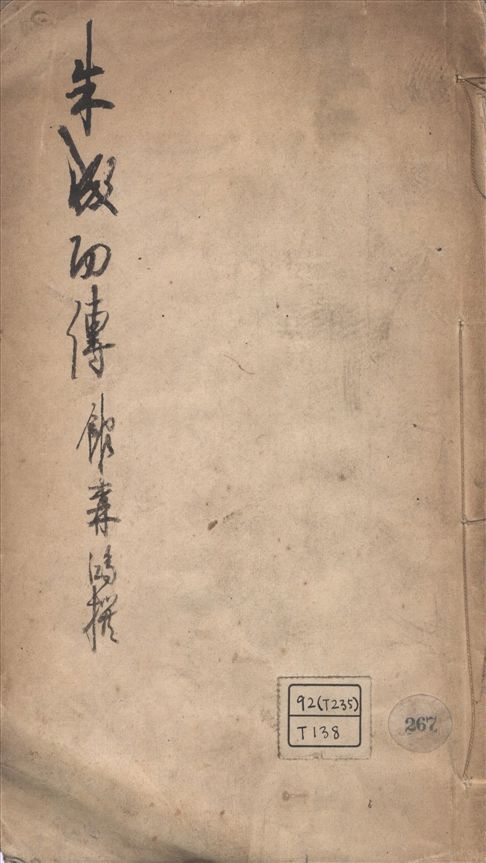 朱成功傳 館森鴻撰
92(T235)
T138
267